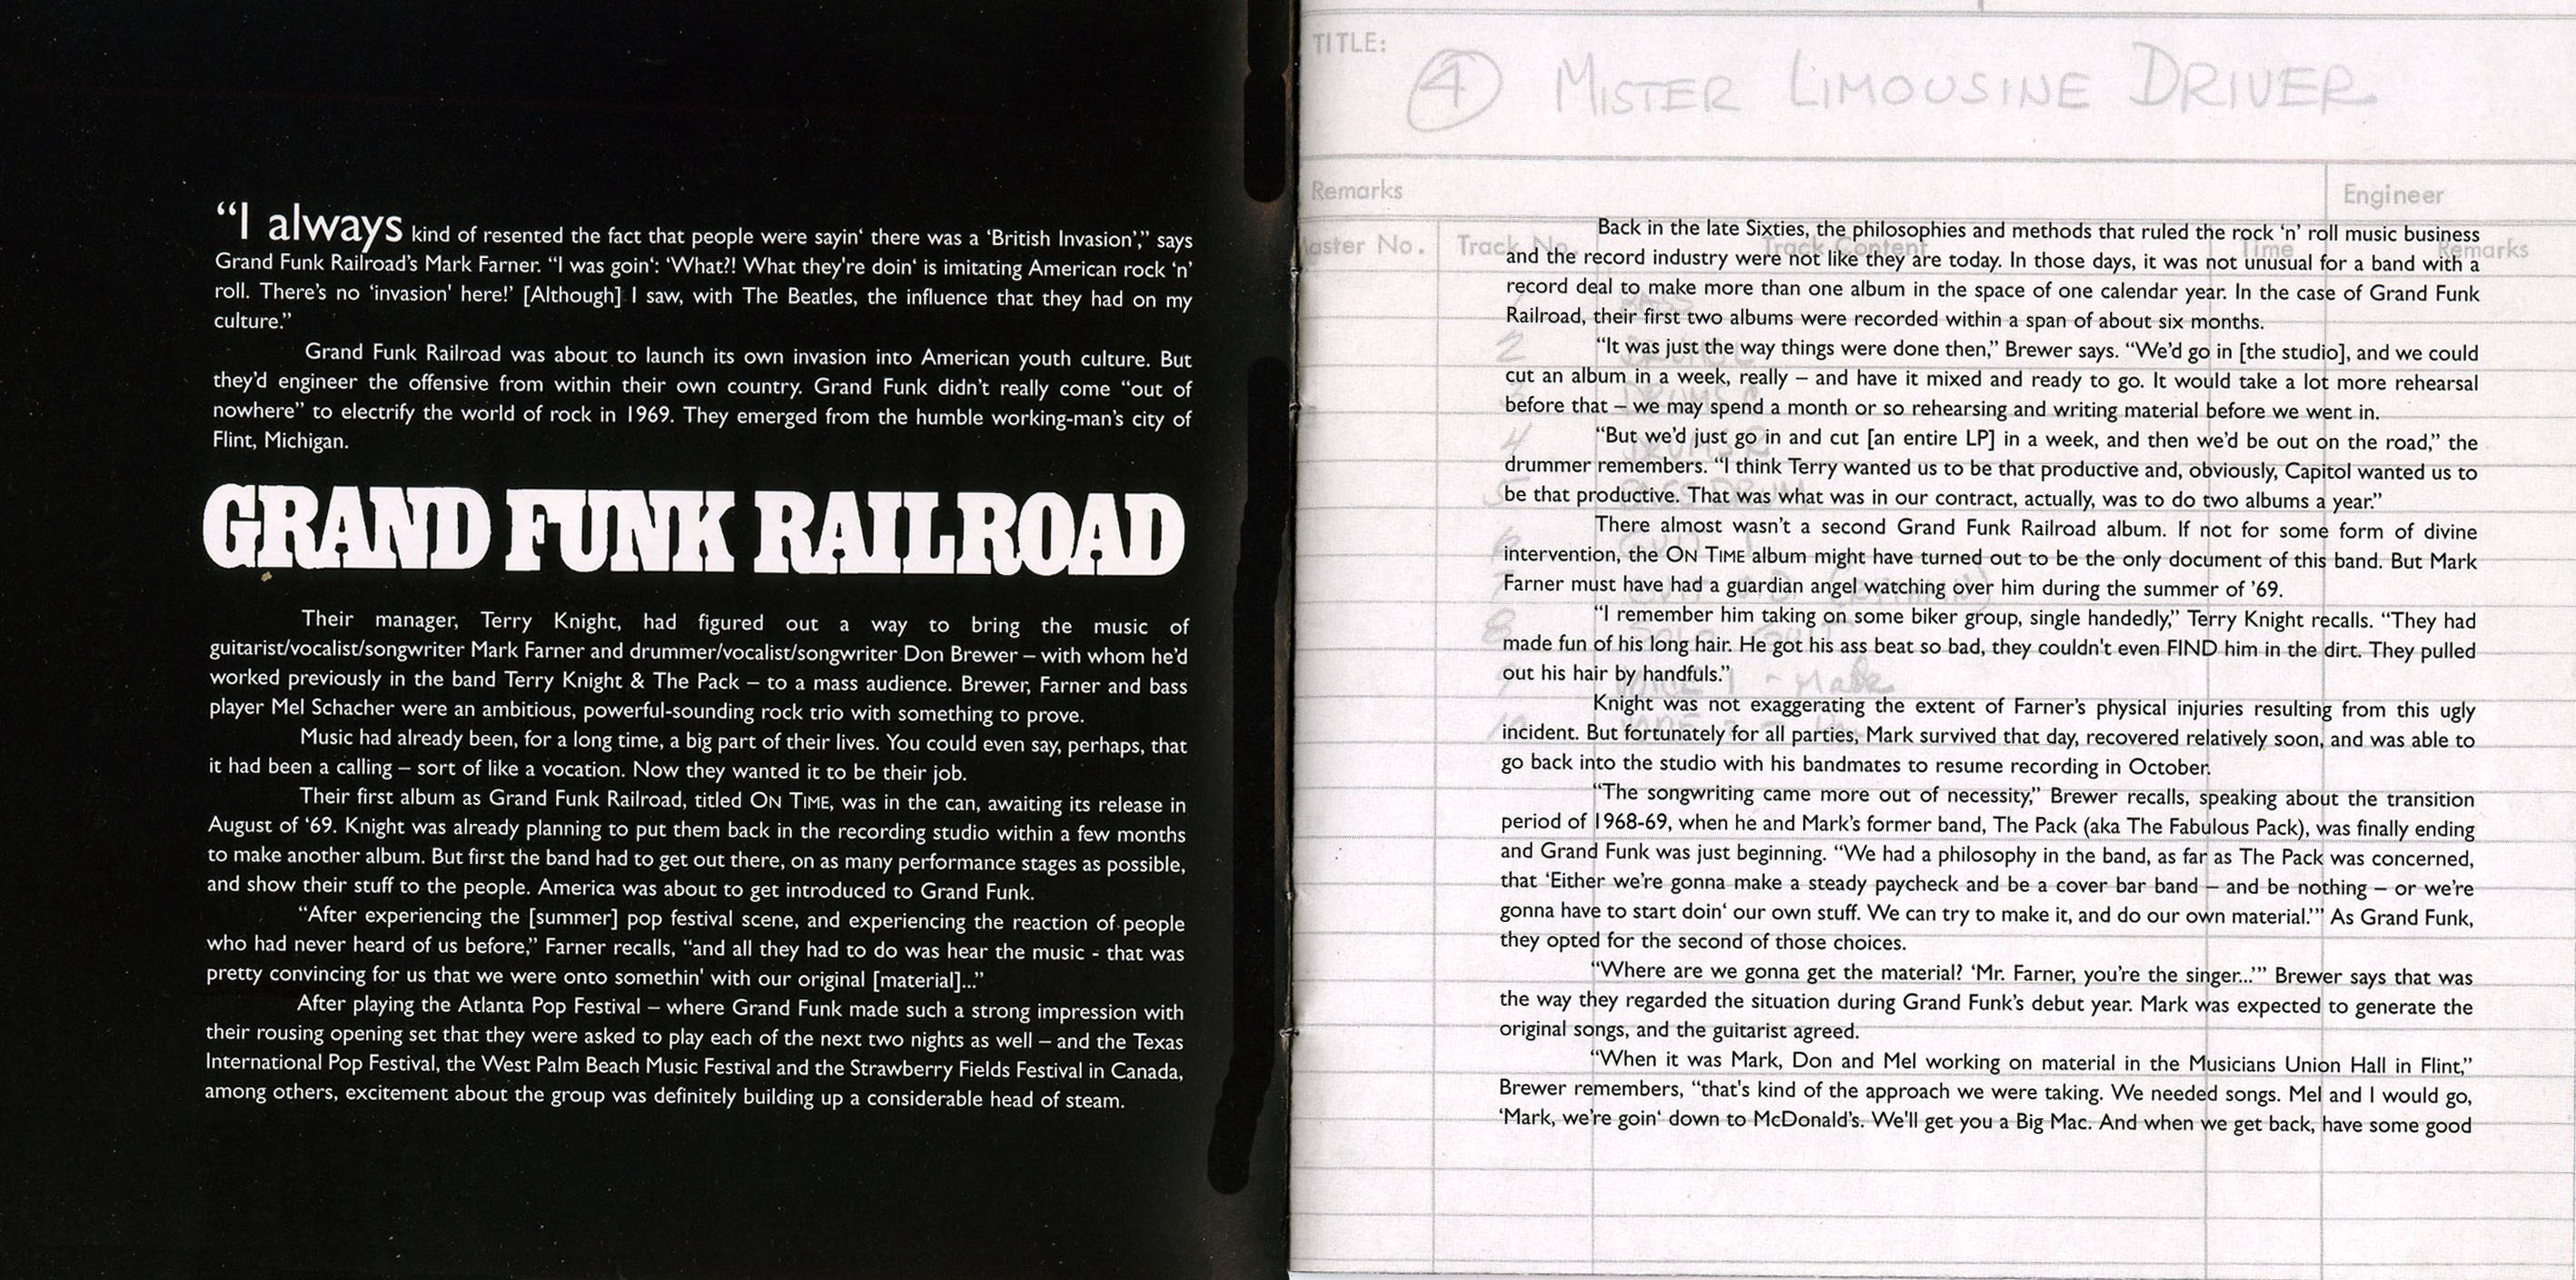 “I always kind of resented the fact that people were sayin‘ there was a ‘British Invasion’,” says
Grand Funk Railroad’s Mark Farner. “I was goin‘: ‘What?! What they're doin‘ is imitating American rock ‘n’
roll. There’s no ‘invasion’ here!’ [Although] I saw, with The Beatles, the influence that they had on my
culture.”
Grand Funk Railroad was about to launch its own invasion into American youth culture. But
they’d engineer the offensive from within their own country. Grand Funk didn’t really come “out of
nowhere” to electrify the world of rock in 1969. They emerged from the humble working-man’s city of
Flint, Michigan.
GRAND FUNK RAILROAD
Their manager, Terry Knight, had figured out a way to bring the music of
guitarist/vocalist/songwriter Mark Farner and drummer/vocalist/songwriter Don Brewer – with whom he’d
worked previously in the band Terry Knight & The Pack – to a mass audience. Brewer, Farner and bass
player Mel Schacher were an ambitious, powerful-sounding rock trio with something to prove.
Music had already been, for a long time, a big part of their lives. You could even say, perhaps, that
it had been a calling – sort of like a vocation. Now they wanted it to be their job.
Their first album as Grand Funk Railroad, titled ON TIME, was in the can, awaiting its release in
August of ‘69. Knight was already planning to put them back in the recording studio within a few months
to make another album. But first the band had to get out there, on as many performance stages as possible,
and show their stuff to the people. America was about to get introduced to Grand Funk.
“After experiencing the [summer] pop festival scene, and experiencing the reaction of people
who had never heard of us before,” Farner recalls, “and all they had to do was hear the music - that was
pretty convincing for us that we were onto somethin' with our original [material]...”
After playing the Atlanta Pop Festival – where Grand Funk made such a strong impression with
their rousing opening set that they were asked to play each of the next two nights as well – and the Texas
International Pop Festival, the West Palm Beach Music Festival and the Strawberry Fields Festival in Canada,
among others, excitement about the group was definitely building up a considerable head of steam.
TITLE:
4 MISTER LIMOUSINE DRIVER
Remarks Engineer
Master No. Track No. Track Content Time Remarks
Back in the late Sixties, the philosophies and methods that ruled the rock ‘n’ roll music business
and the record industry were not like they are today. In those days, it was not unusual for a band with a
record deal to make more than one album in the space of one calendar year. In the case of Grand Funk
Railroad, their first two albums were recorded within a span of about six months.
“It was just the way things were done then,” Brewer says. “We’d go in [the studio], and we could
cut an album in a week, really – and have it mixed and ready to go. It would take a lot more rehearsal
before that – we may spend a month or so rehearsing and writing material before we went in.
“But we’d just go in and cut [an entire LP] in a week, and then we’d be out on the road,” the
drummer remembers. “I think Terry wanted us to be that productive and, obviously, Capitol wanted us to
be that productive. That was what was in our contract, actually, was to do two albums a year.”
There almost wasn’t a second Grand Funk Railroad album. If not for some form of divine
intervention, the ON TIME album might have turned out to be the only document of this band. But Mark
Farner must have had a guardian angel watching over him during the summer of ’69.
“I remember him taking on some biker group, single handedly,” Terry Knight recalls. “They had
made fun of his long hair. He got his ass beat so bad, they couldn't even FIND him in the dirt. They pulled
out his hair by handfuls.”
Knight was not exaggerating the extent of Farner’s physical injuries resulting from this ugly
incident. But fortunately for all parties, Mark survived that day, recovered relatively soon, and was able to
go back into the studio with his bandmates to resume recording in October.
“The songwriting came more out of necessity,” Brewer recalls, speaking about the transition
period of 1968-69, when he and Mark’s former band, The Pack (aka The Fabulous Pack), was finally ending
and Grand Funk was just beginning. “We had a philosophy in the band, as far as The Pack was concerned,
that ‘Either we’re gonna make a steady paycheck and be a cover bar band – and be nothing – or we’re
gonna have to start doin‘ our own stuff. We can try to make it, and do our own material.’” As Grand Funk,
they opted for the second of those choices.
“Where are we gonna get the material? ‘Mr. Farner, you’re the singer...’” Brewer says that was
the way they regarded the situation during Grand Funk’s debut year. Mark was expected to generate the
original songs, and the guitarist agreed.
“When it was Mark, Don and Mel working on material in the Musicians Union Hall in Flint,”
Brewer remembers, “that's kind of the approach we were taking. We needed songs. Mel and I would go,
‘Mark, we’re goin‘ down to McDonald’s. We'll get you a Big Mac. And when we get back, have some good